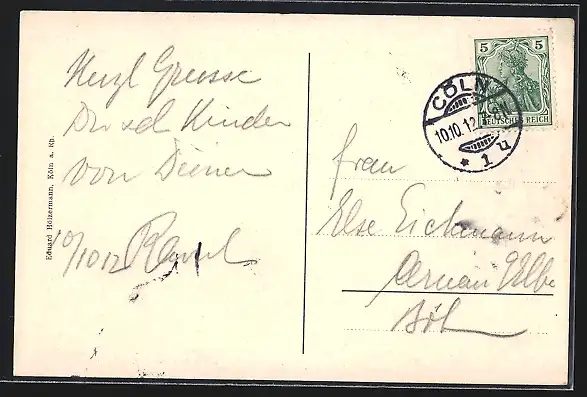 Herzl Grüsse
Dir sel Kinder
von Deiner
10/10 12
Eduard Hölzermann, Köln a. Rh.
5 5
DEUTSCHES REICH
CÖLN
10.10.12
* 1 u
Frau
Else Eichmann